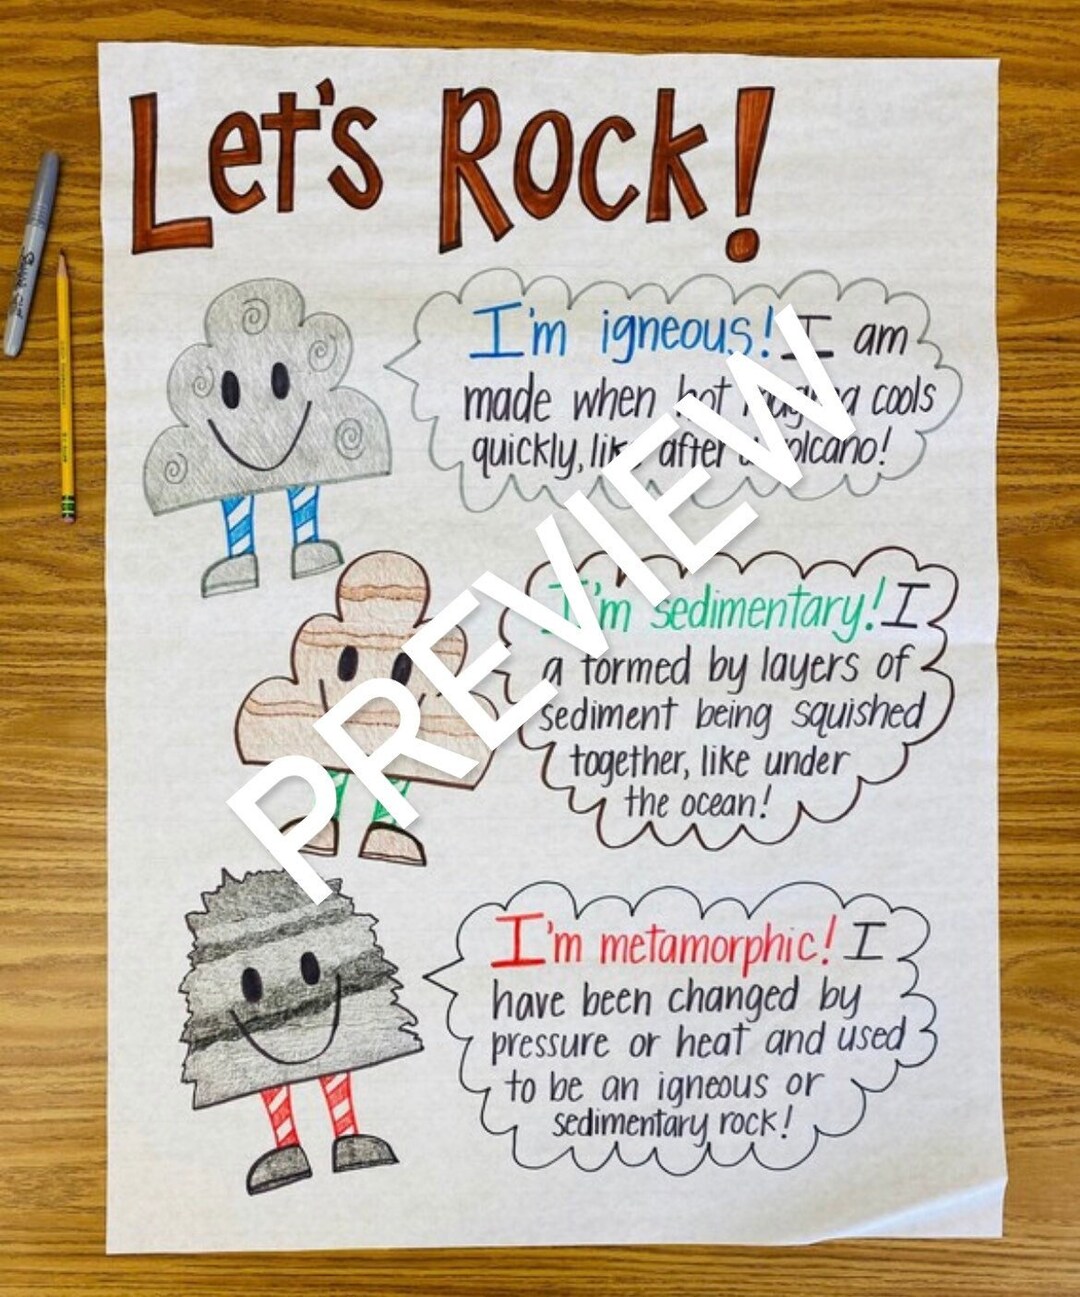 Let's Rock!
I'm igneous! I am
made when hot magma cools
quickly, like after a volcano!
I'm sedimentary! I
a formed by layers of
sediment being squished
together, like under
the ocean!
I'm metamorphic! I
have been changed by
pressure or heat and used
to be an igneous or
sedimentary rock!
PREVIEW
Sharpie